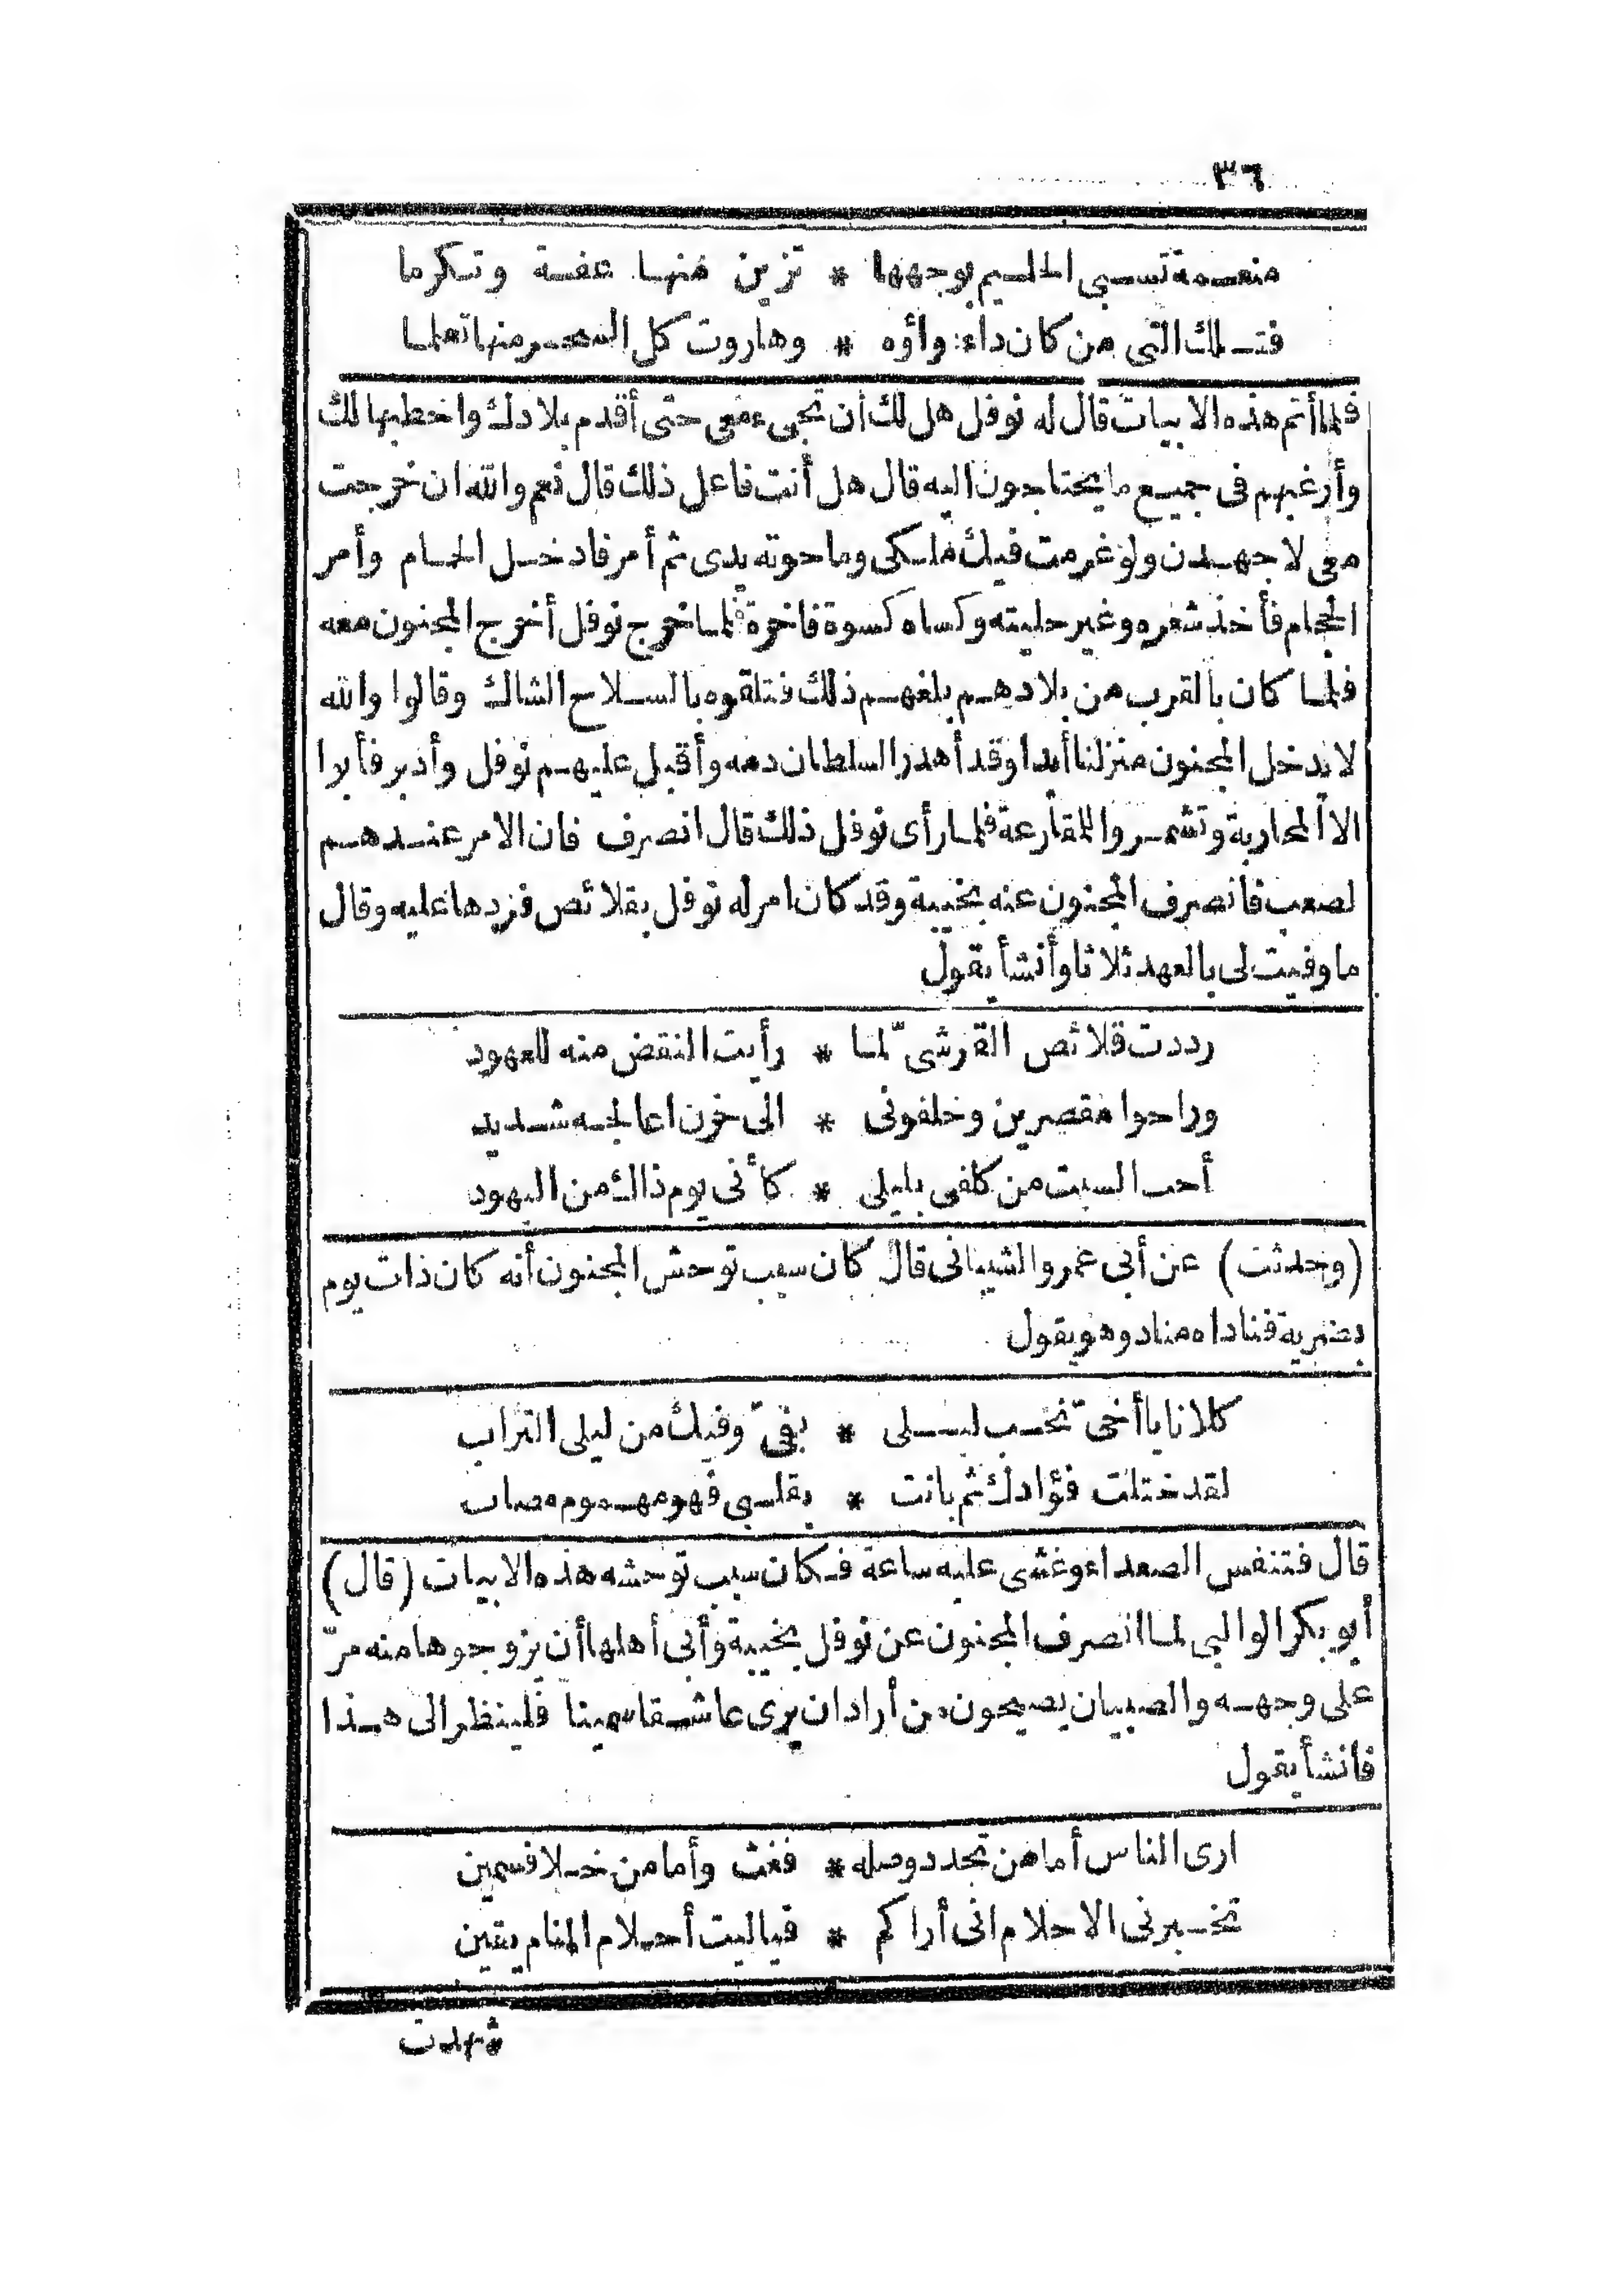 ٣٦
منعمة تسبي الحليم بوجهها * تزين منها عفة وتكرما
فتلك التي من كان داء دواؤه * وهاروت كل السحر منها تعلما
فلما أتم هذه الابيات قال له نوفل هل لك أن تجيء معي حتى أقدم بلادك واخطبها لك
وأرغبهم في جميع ما يحتاجون اليه قال هل أنت فاعل ذلك قال نعم والله ان خرجت
معي لاجهدن ولو غرمت فيك ملكي وما حوته يدي ثم أمر فادخل الحمام وأمر
الحجام فأخذ شعره وغير حليته وكساه كسوة فاخرة فلما خرج نوفل أخرج المجنون معه
فلما كان بالقرب من بلادهم بلغهم ذلك فتلقوه بالسلاح الشاك وقالوا والله
لا يدخل المجنون منزلنا أبدا وقد أهدر السلطان دمه وأقبل عليهم نوفل وأدبر فأبوا
الا المحاربة وتشمروا للمقارعة فلما رأى نوفل ذلك قال انصرف فان الامر عندهم
لصعب فانصرف المجنون عنه بخيبة وقد كان امر له نوفل بقلائص فردها عليه وقال
ما وفيت لي بالعهد ثلاثا وأنشأ يقول
رددت قلائص القرشيّ لما * رأيت النقض منه للعهود
وراحوا مقصرين وخلفوني * الى حزن اعالجه شديد
أحب السبت من كلفي بليلى * كأني يوم ذاك من اليهود
(وحدثت) عن أبي عمرو الشيباني قال كان سبب توحش المجنون أنه كان ذات يوم
بضرية فناداه مناد وهو يقول
كلانا يا أخيّ تحب ليلى * بفيّ وفيك من ليلى التراب
لقد ختلت فؤادك ثم بانت * بقلبي فهو مهموم مصاب
قال فتنفس الصعداء وغشى عليه ساعة فكان سبب توحشه هذه الابيات (قال)
أبو بكر الوالبي لما انصرف المجنون عن نوفل بخيبة وأبى أهلها أن يزوجوها منه مرّ
على وجهه والصبيان يصيحون من أراد ان يرى عاشقا سمينا فلينظر الى هذا
فانشأ يقول
ارى الناس أما من تجدد وصله * فغث وأما من خلا فسمين
تخبرني الاحلام اني أراكم * فياليت أحلام المنام يقين
شهدت